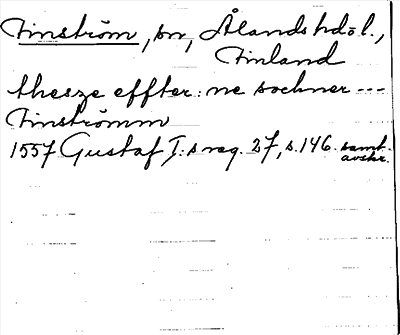 Finström, sn, Ålands hdöl.,
Finland
thesze effter: ne sochner ---
Finströmm
1557 Gustaf I:s reg. 27, s. 146. samt.
avskr.